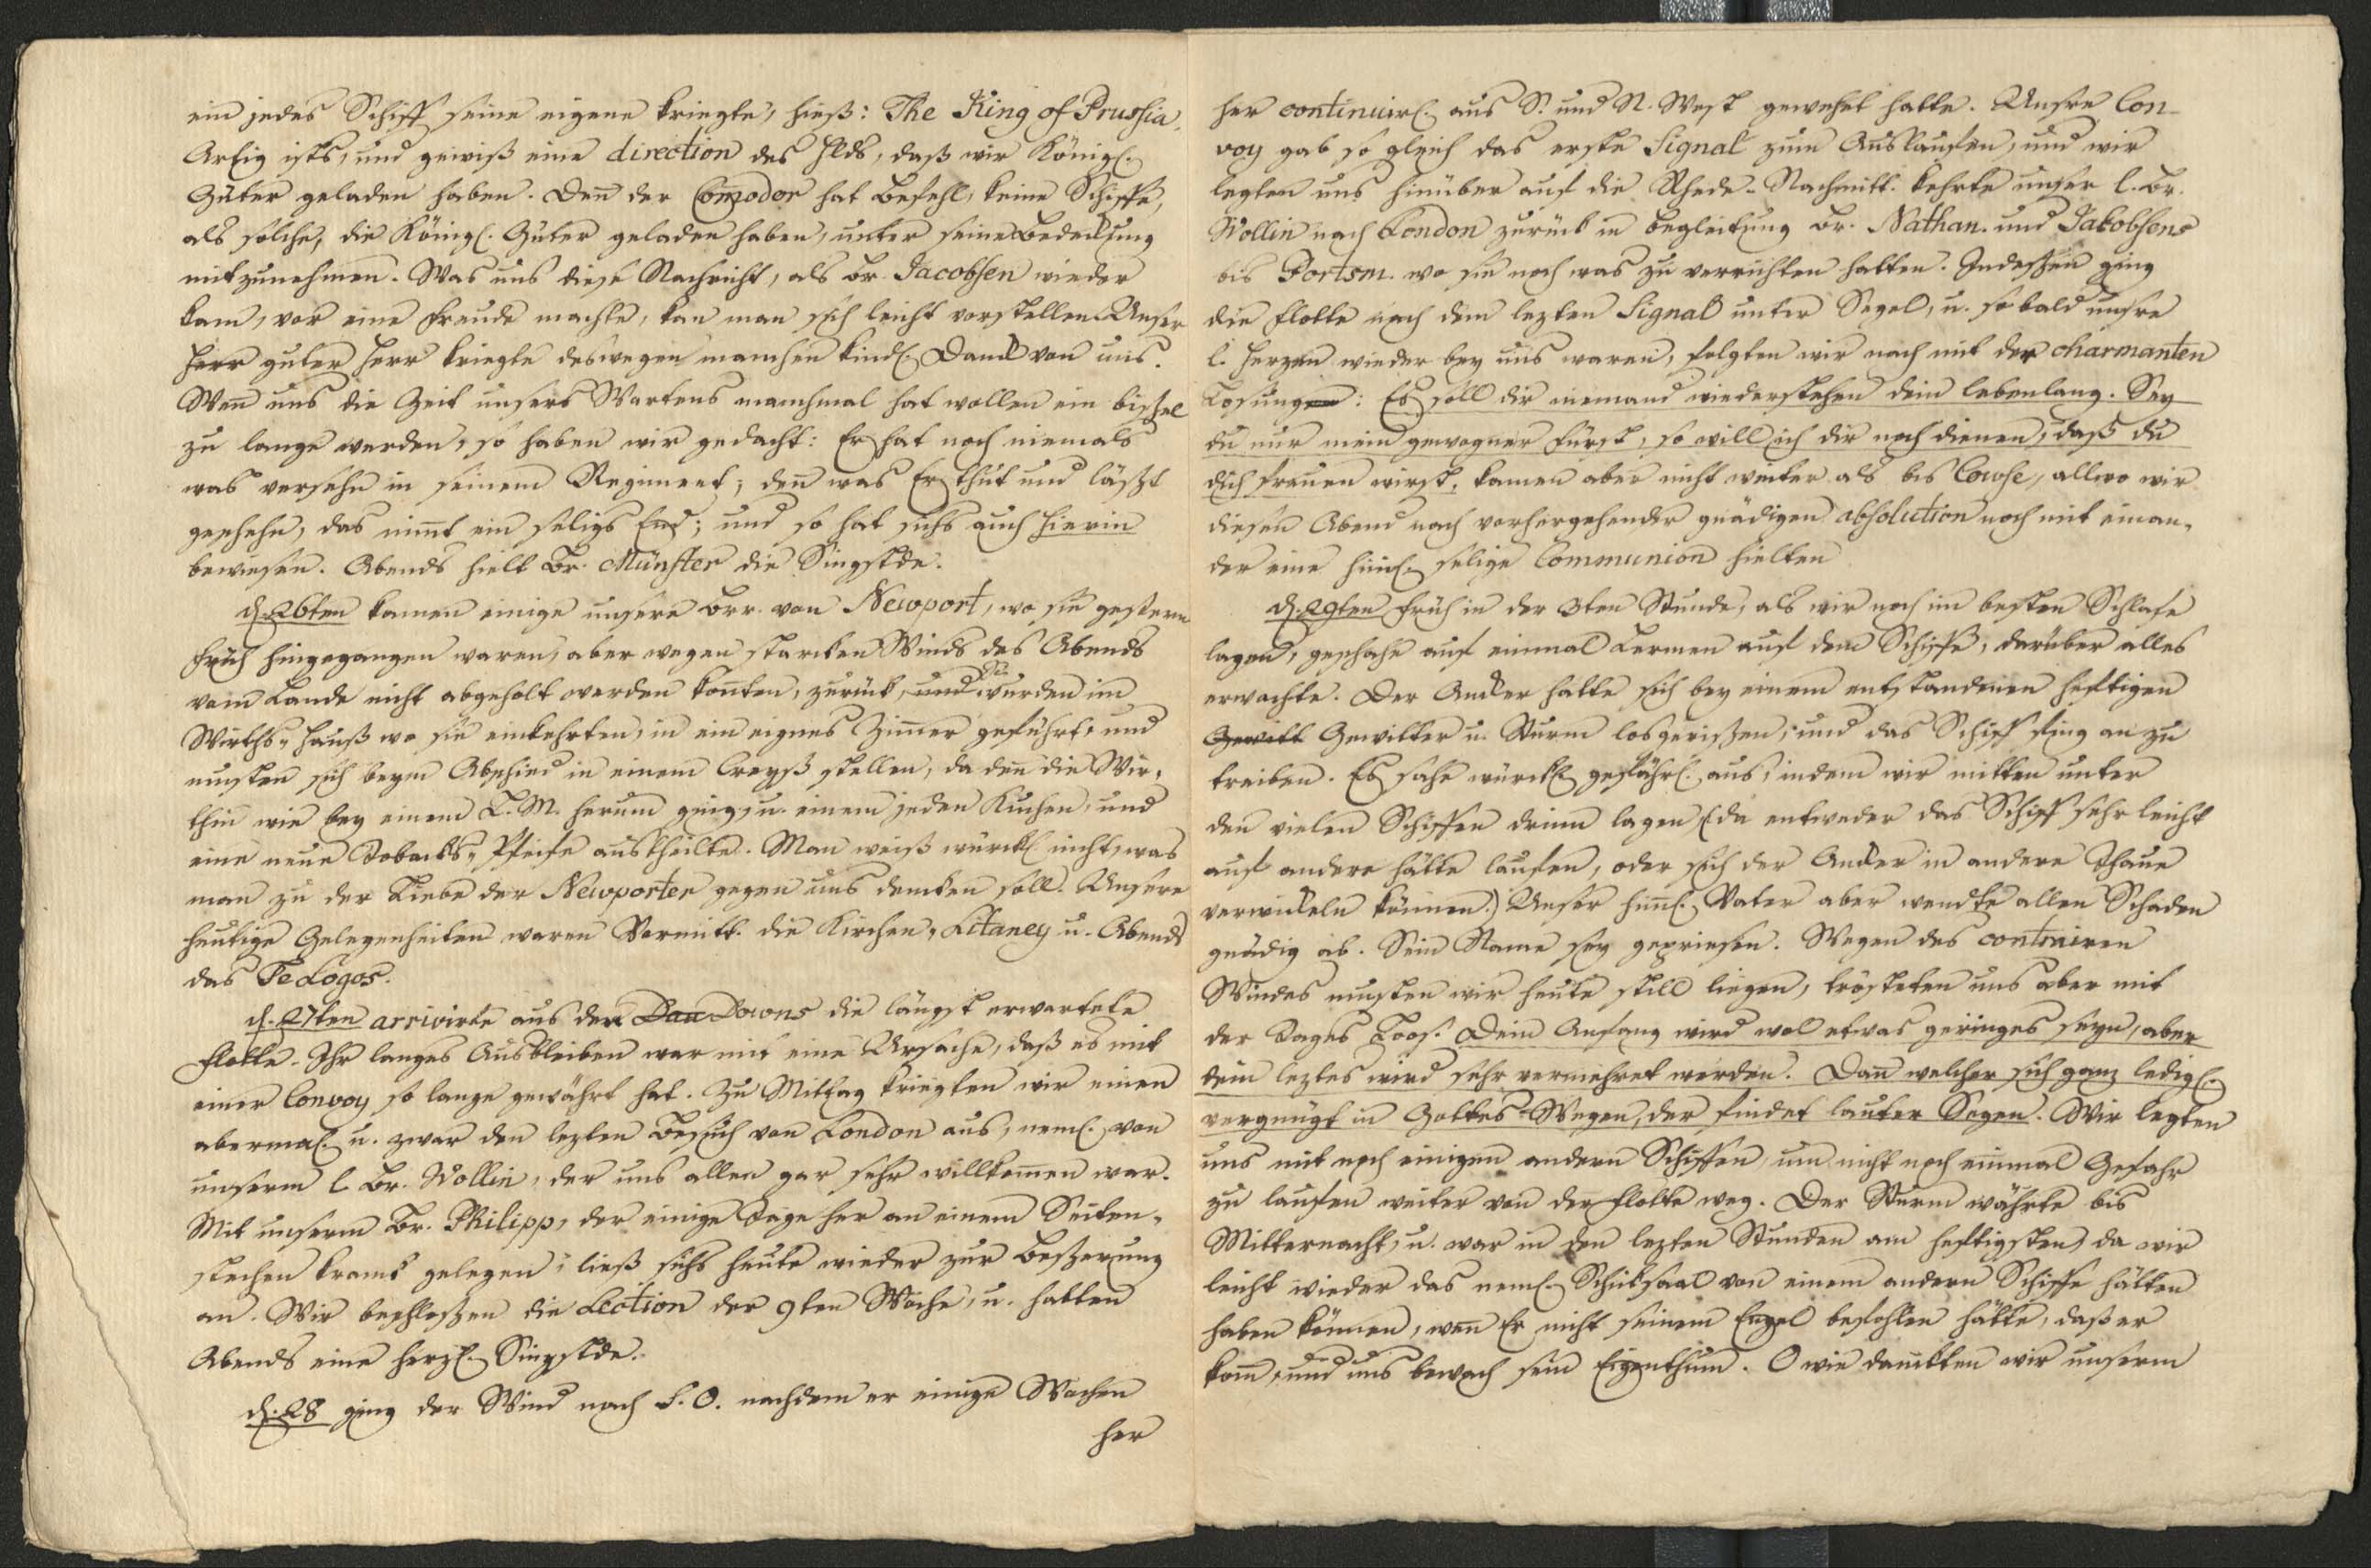 ein jedes Schiff seine eigene kriegte, hieß: The King of Prussia.
Artig ists, und gewiß eine direction des Hlds, daß wir Königl.
Güter geladen haben. Deñ der Com̃odor hat Befehl, keine Schiffe,
als solche, die Königl. Güter geladen haben, unter seine Bedeckung
mitzunehmen. Was uns diese Nachricht, als Br. Jacobsen wieder
kam, vor eine Freude machte, kan man sich leicht vorstellen. Unser
Herr guter Herr kriegte deswegen manchen kindl. Danck von uns.
Weñ uns die Zeit unsers Wartens manchmal hat wollen ein bissel
zu lange werden, so haben wir gedacht: Er hat noch niemals
was versehn in seinem Regiment; deñ was Er thut und läßt
geschehn, das nim̃t ein seligs End; und so hat sichs auch hierin
bewiesen. Abends hielt Br. Münster die Singstde.
d. 26ten kamen einige unsere Brr. von Newport, wo sie gestern
früh hingegangen waren, aber wegen starcken Winds des Abends
vom Lande nicht abgeholt werden konten, zurück, und Sie wurden im
Wirths-Hauß wo sie einkehrten, in ein eignes Zim̃er geführt, und
musten sich beym Abschied in einem Creyß stellen, da deñ die Wir-
thin wie bey einem L.M. herum ging, u. einem jeden Kuchen und
eine neue Tobacks-Pfeife austheilte. Man weiß würckl. nicht, was
man zu der Liebe der Newporter gegen uns dencken soll. Unsere
heutige Gelegenheiten waren Vormitt. die Kirchen-Litaney u. Abends
das Te Logos.
d. 27ten arrivirte aus den Dau Downs die längst erwartete
Flotte. Ihr langes Ausbleiben war mit eine Ursache, daß es mit
einer Convoy so lange gewährt hat. Zu Mittag kriegten wir einen
abermal. u. zwar den lezten Besuch von London aus, neml. von
unserm l. Br. Wollin, der uns allen gar sehr willkom̃en war.
Mit unserm Br. Philipp, der einige Tage her an einem Seiten-
stechen kranck gelegen, ließ sichs heute wieder zur Beßerung
an. Wir beschloßen die Lection der 9ten Woche, u. hatten
Abends eine herzl. Singstde.
d. 28 ging der Wind nach S.O. nachdem er einige Wochen
her
her continuirl. aus S. und N. West gewehet hatte. Unsre Con-
voy gab so gleich das erste Signal zum Auslaufen, und wir
legten uns hinüber auf die Rhede. Nachmitt. kehrte unser l. Br.
Wollin nach London zurück in Begleitung Br. Nathan. und Jakobsens
bis Portsm. wo sie noch was zu verrichten hatten. Indeßen ging
die Flotte nach dem lezten Signal unter Segel, u. so bald unsre
l. Herzen wieder bey uns waren, folgten wir nach mit der charmanten
Losung: Es soll dir niemand wiederstehen dein lebenlang. Sey
du nur mein gewogner Fürst, so will ich dir noch dienen, daß du
dich freuen wirst, kamen aber nicht weiter als bis Cowse, allwo wir
diesen Abend nach vorhergehender gnädigen absolution noch mit einan-
der eine him̃l. selige Communion hielten
d. 29ten Früh in der 3ten Stunde, als wir noch im besten Schlafe
lagen, geschahe auf einmal Lermen auf dem Schiffe, darüber alles
erwachte. Der Ancker hatte sich bey einem entstandenen heftigen
Gewitt Gewitter u. Sturm losgerißen, und das Schiff fing an zu
treiben. Es sahe würckl. gefährl. aus, indem wir mitten unter
den vielen Schiffen drinn lagen (da entweder das Schiff sehr leicht
auf andere hätte laufen, oder sich der Ancker in andere Thaue
verwickeln können.) Unser him̃l. Vater aber wendte allen Schaden
gnädig ab. Sein Name sey gepriesen. Wegen des contrairen
Windes musten wir heute still liegen, trösteten uns aber mit
der Tages Loos: Dein Anfang wird wol etwas geringes seyn, aber
dein leztes wird sehr vermehret werden. Dañ welcher sich ganz ledigl.
vergnügt in Gottes-Wegen, der findet lauter Segen. Wir legten
uns mit noch einigen andern Schiffen, um nicht noch einmal Gefahr
zu laufen weiter von der Flotte weg. Der Sturm währte bis
Mitternacht, u. war in den lezten Stunden am heftigsten, da wir
leicht wieder das neml. Schicksaal von einem andern Schiffe hätten
haben können, weñ Er nicht seinem Engel befohlen hätte, daß er
kom̃, und uns bewach sein Eigenthum. O wie danckten wir unserm